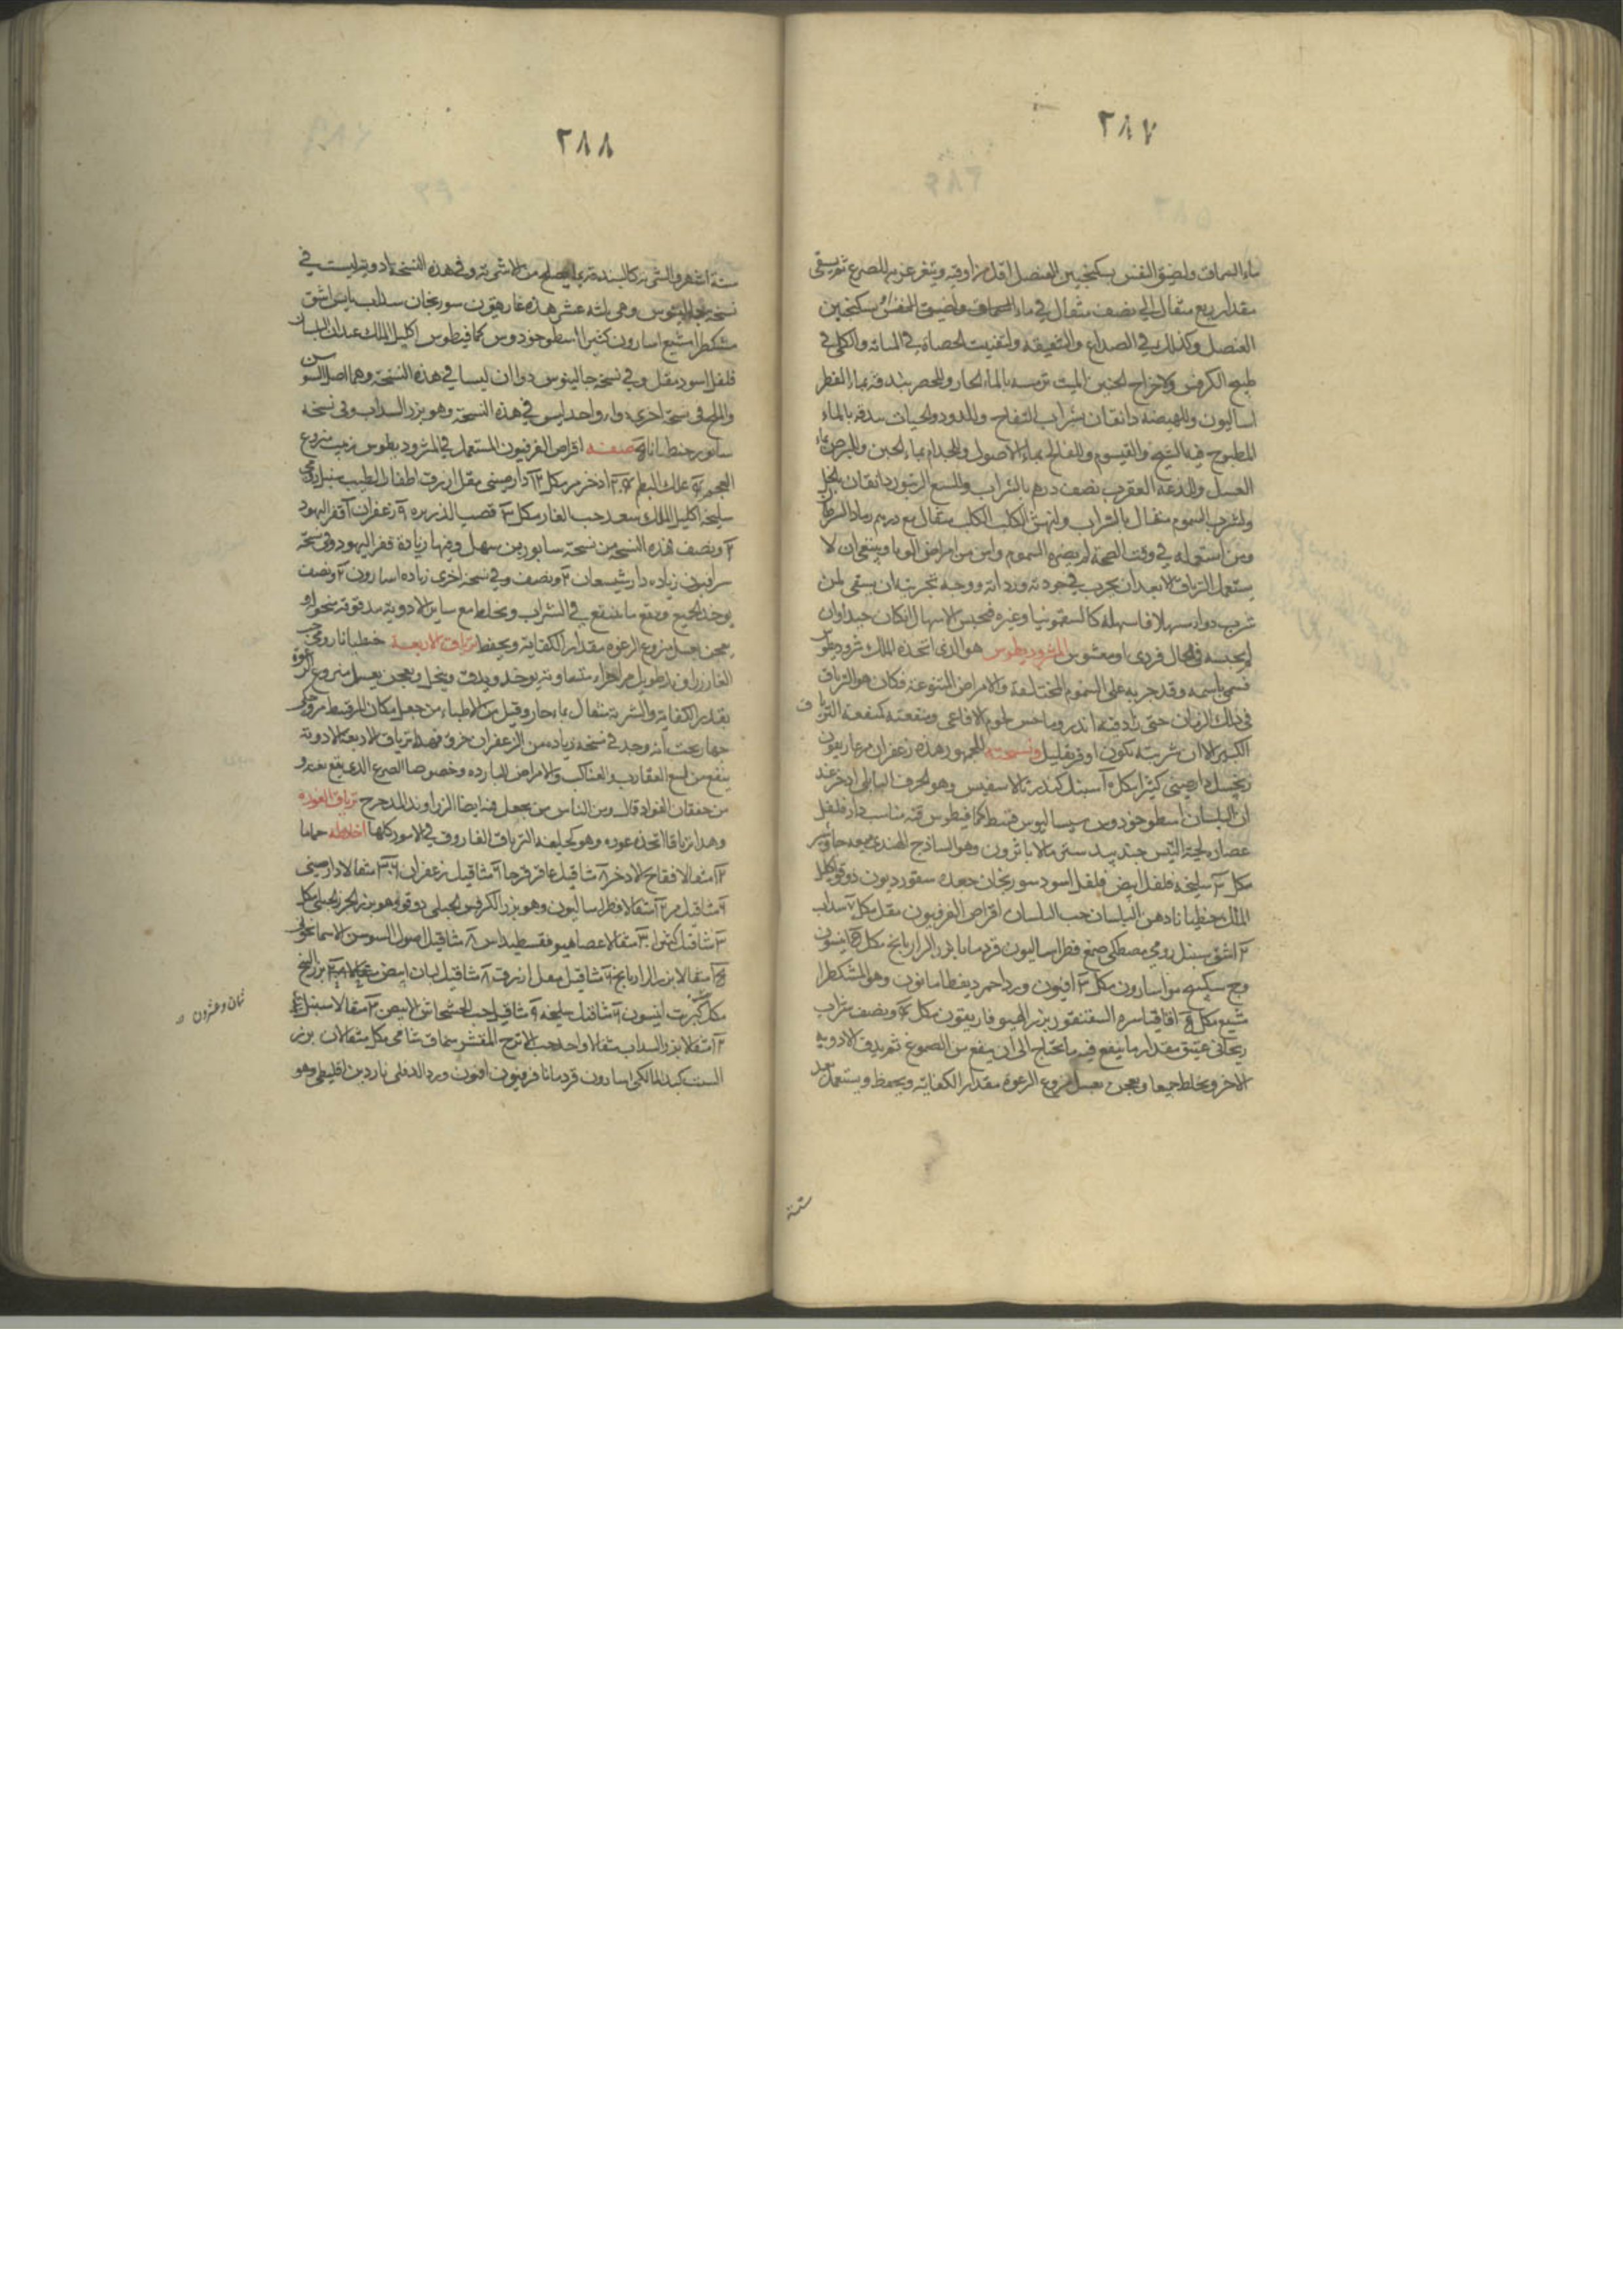 ٢٨٧
ماء السماق ولضيق النفس بسكنجبين العنصل اقل من اوقيه ويتغرغر به للصرع ثم يسقى
مقدار ربع مثقال الى نصف مثقال في ماء السماق ولضيق النفس بسكنجبين
العنصل وكذلك في الصداع والشقيقه ولتفتيت الحصاة في المثانه والكلى في
طبيخ الكرفس ولاخراج الجنين الميت ترمسه بالماء الحار وللحصر بندقه بماء الفطر
اساليون وللهيضه دانقان بشراب التفاح وللدود والحيات بندقه بالماء
المطبوخ فيه الشيح والقيسوم وللفالج بماء الاصول وللجذام بماء الجبن وللبرص بماء
العسل وللدغة العقرب نصف درهم بالشراب وللسع الزنبور دانقان بالخل
ولشرب السموم مثقال بالشراب ولنهش الكلب الكلب مثقال مع درهم رماد السرطا
ومن استعمله في وقت الصحة لم يضره السموم وامن من امراض الوبا وينبغي ان لا
يستعمل الترياق الا بعد ان يجرب في جودته وردائه ووجه تجربته ان يسقى لمن
شرب دواء مسهلا فاسهله كالسقمونيا وغيره فيحبس الاسهال ان كان جيدا وان
لم يحبسه في الحال فردي او مغشوش المثروديطوس هو الذي اتخذه الملك مثروديطوس
فسمي باسمه وقد جربه على السموم المختلفة والامراض المتنوعة فكان هو الترياق
في ذلك الزمان حتى زاد فيه اندروماخس لحوم الافاعي ومنفعته كمنفعة الترياق
الكبير الا ان شربته تكون اوفر بقليل ونسخته للجمهور هذه زعفران مر غاريقون
زنجبيل دارصيني كثيرا مكل ١٠ سنبل كندر ثلاسفيس وهو الحرف البابلي اذخر عيد
ان البلسان اسطوخودوس سيساليوس قسط كمافيطوس قنه دارفلفل
عصارة لحية التيس جندبيدستر مالاباثرون وهو الساذج الهندي ميعه جاوشير
مكل سليخه فلفل ابيض فلفل اسود سورنجان جعده سقورديون دوقو اكليل
الملك جنطيانا دهن البلسان حب البلسان اقراص الفرفيون مقل مكل ٧ سداب
٢ اشق سنبل رومي مصطكي صمغ فطراساليون قردمانا بزر الرازيانج مكل انيسون
وج سكبينج مو اسارون مكل ٣ افيون ورد احمر ديقطامانون وهو المشكطرا
مشيع مكل اقاقيا سره السقنقور بزر الهيوفاريقون مكل ونصف شراب
ريحاني عتيق مقدار ما ينقع فيه ما يحتاج الى ان ينقع من الصموغ ثم يدق الادويه
الاخر ويخلط جميعا ويعجن بعسل منزوع الرغوة مقدار الكفاية ويحفظ ويستعمل بعد
ستة
٢٨٨
ستة اشهر والشربة كالبندقة بما يصلح من الاشربة وفي هذه النسخة ادوية ليست في
نسخة جالينوس وهي ثلثه عشر هذه غاريقون سورنجان سداب يابس اشق
مشكطرامشيع اسارون كثيرا اسطوخودوس كمافيطوس اكليل الملك عيدان البلسان
فلفل اسود مقل وفي نسخة جالينوس دواان ليسا في هذه النسخة وهما اصل السوسن
والملح وفي نسخة اخرى دواء واحد ليس في هذه النسخة وهو بزر السداب وفي نسخة
سابور جنطيانا صفة اقراص الفرفيون المستعمل في المثروديطوس زبيب منزوع
العجم علك البطم اذخر مر مكل ١٢ دارصيني مقل ازرق اظفار الطيب سنبل رومي
سليخه اكليل الملك سعد حب الغار مكل ٣ قصب الذريره ٩ زعفران ١ قفر اليهود
٢ ونصف هذه النسخة من نسخة سابور بن سهل وفيها زيادة قفر اليهود وفي نسخة
سرافيون زياده دارشيشعان ٢ ونصف وفي نسخة اخرى زياده اسارون ٢ ونصف
يوخذ الجميع وينقع ما ينقع في الشراب ويخلط مع ساير الادوية مدقوقة منخولة و
يعجن بعسل منزوع الرغوه مقدار الكفاية ويحفظ ترياق الاربعة جنطيانا رومي حب
الغار زراوند طويل مر اجزاء متساوية يوخذ ويدق وينخل ويعجن بعسل منزوع الرغوة
بقدر الكفاية والشربة مثقال بماء حار وقيل من الاطباء من جعل مكان المر قسط مر وحكى
بختيشوع انه وجد في نسخة زياده من الزعفران جزو فهذا ترياق الاربعة الادوية
ينفع من لسع العقارب والعناكب والامراض الباردة وخصوصا الصرع الذي يقع بغتة و
من خفقان الفواد قال ومن الناس من يجعل فيه ايضا الزراوند المدحرج ترياق العزره
وهذا ترياقا اتخذه عزره وهو كخليفة الترياق الفاروق في الامور كلها اخلاطه حماما
١٢ مثقالا فقاح الاذخر ٨ مثاقيل عاقرقرحا ٦ مثاقيل زعفران ٣٦ مثقالا دارصيني
٦ مثاقيل مر ١٢ مثقالا فطراساليون وهو بزر الكرفس الجبلي دوقو وهو بزر الجزر الجبلي مكل
٣ مثاقيل كثيرا ٣٠ مثقالا عصا هيوفقسطيداس ٨ مثاقيل اصول السوسن الاسمانجوني
مثقالا بزر الرازيانج ٦ مثاقيل مقل ازرق ٨ مثاقيل لبان ابيض ٢٨ بزر البنج
مكل كبريت انيسون ٦ مثاقيل سليخه ٩ مثاقيل حب الخشخاش الابيض ١٢ مثقالا سنبل
١٢ مثقالا بزر السداب مثقالا واحد حب الاترج المقشر سماق شامي مكل مثقالان بزر
السنت كبد المالكي اسارون قردمانا فرفيون افيون ورد الدفلى ناردين اقليطي وهو
ثمان وعشرون